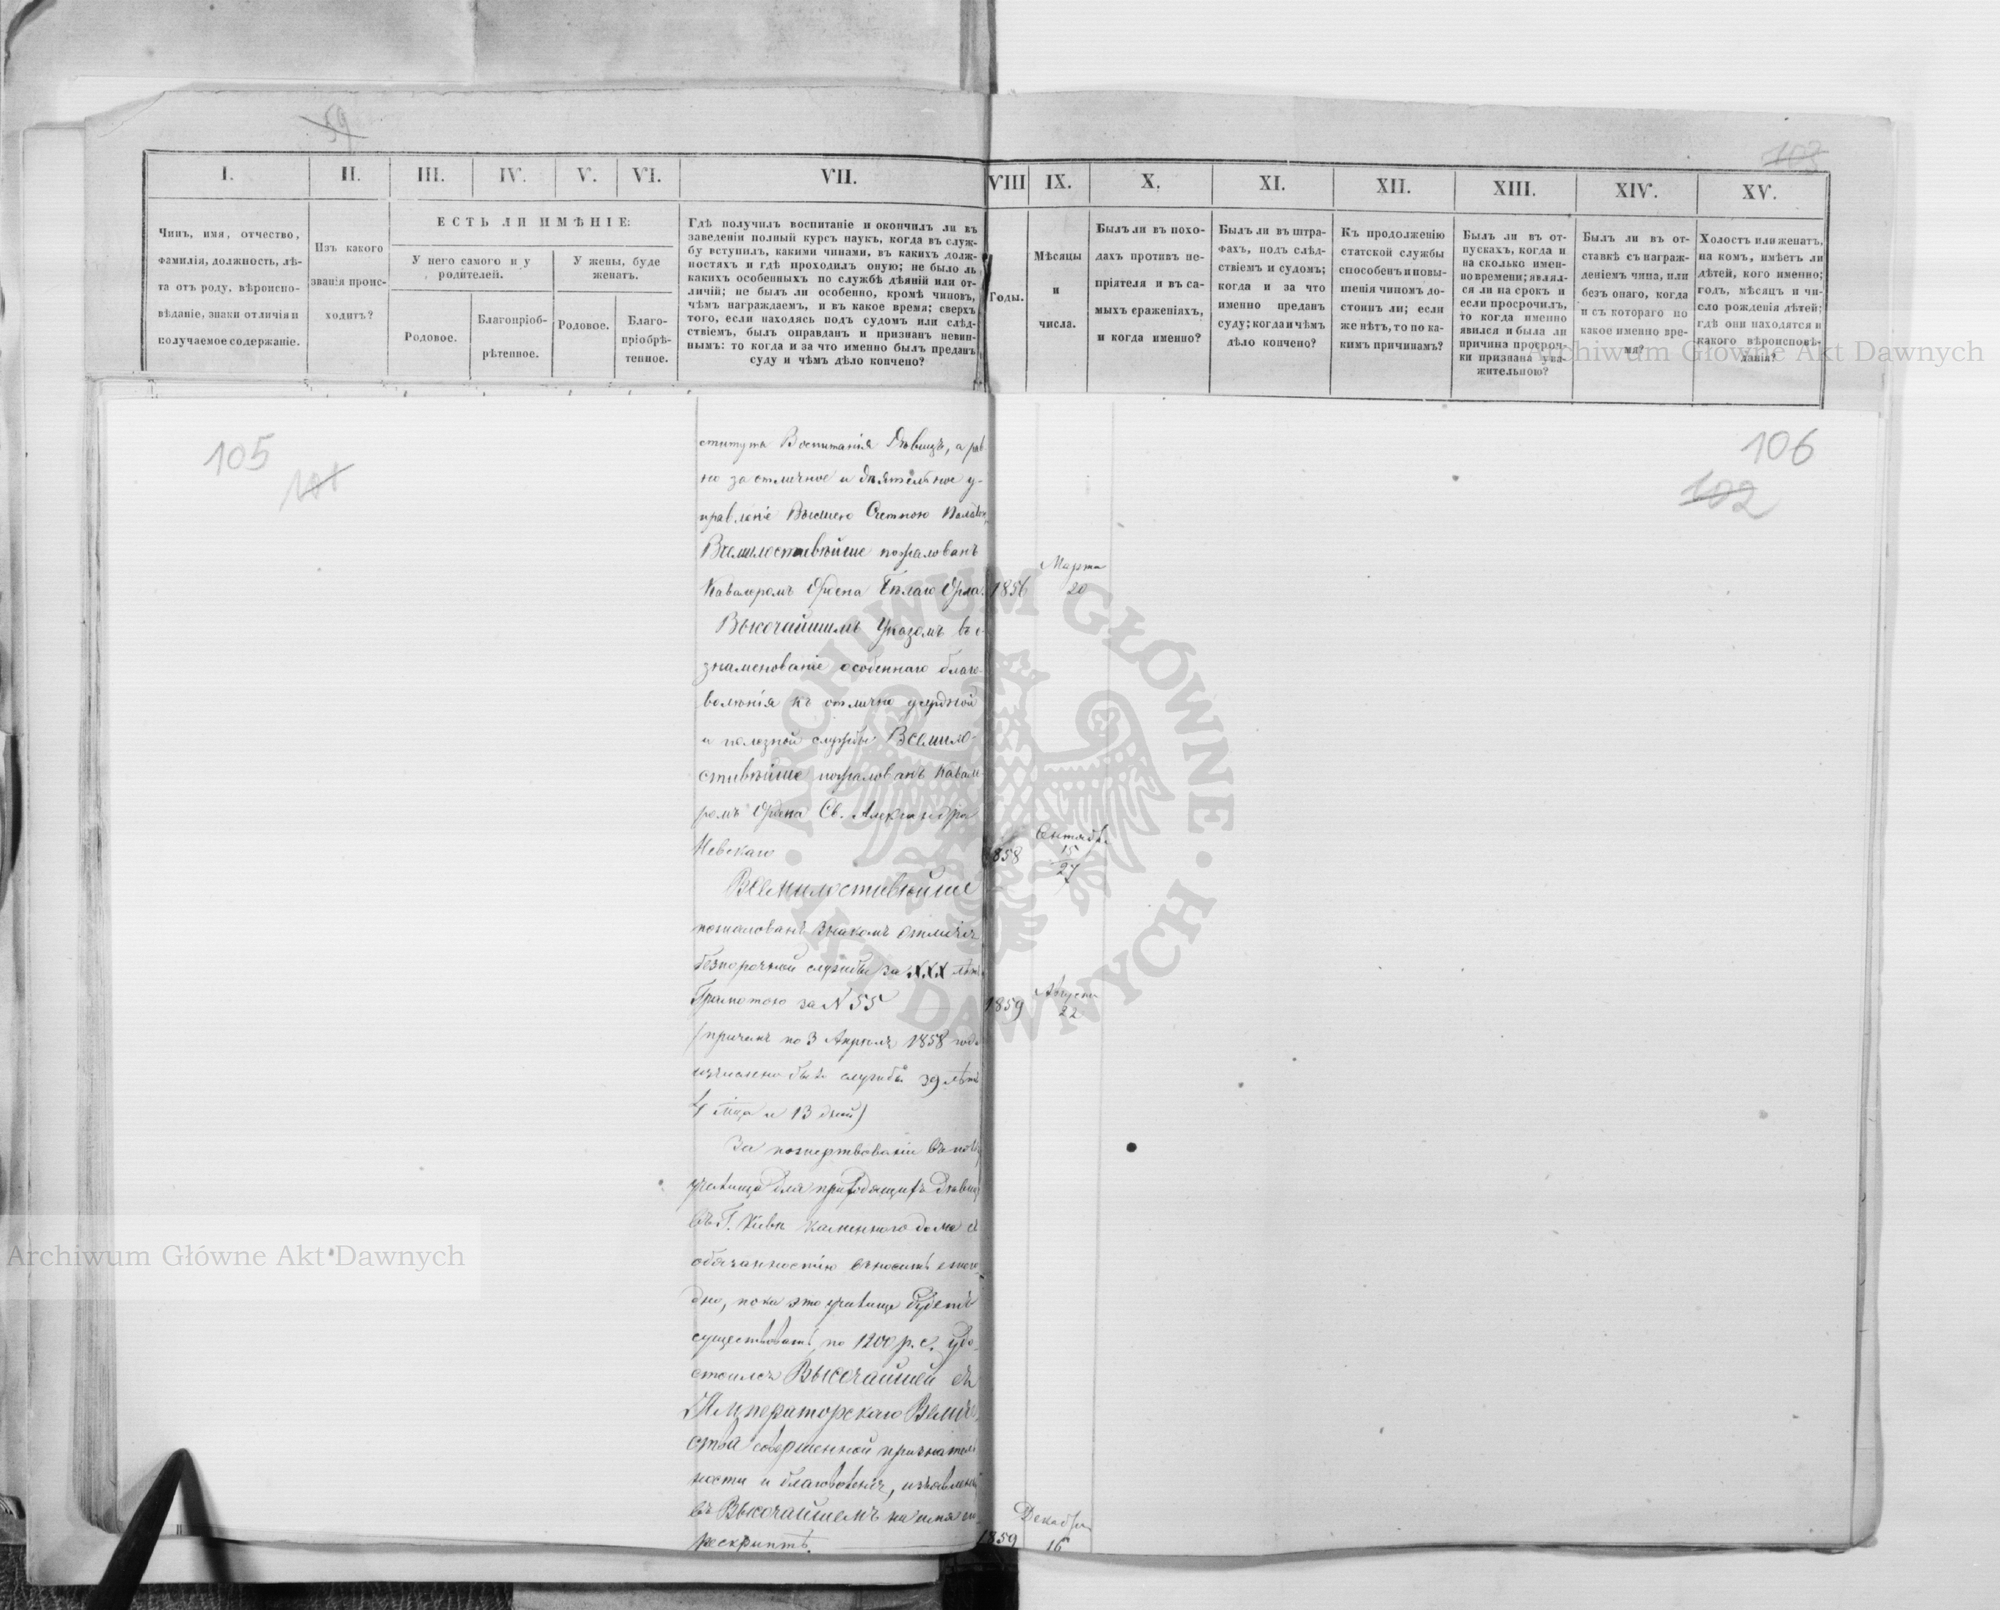 59
103
I.
II.
III.
IV.
V.
VI.
VII.
VIII
IX.
X.
XI.
XII.
XIII.
XIV.
XV.
Чинъ, имя, отчество,
фамилія, должность, лѣ-
та отъ роду, вѣроиспо-
вѣданіе, знаки отличія и
получаемое содержаніе.
Изъ какого
званія проис-
ходитъ?
ЕСТЬ ЛИ ИМѢНІЕ:
У него самого и у
родителей.
У жены, буде
женатъ.
Родовое.
Благопріоб-
рѣтенное.
Родовое.
Благо-
пріобрѣ-
тенное.
Гдѣ получилъ воспитаніе и окончилъ ли въ
заведеніи полный курсъ наукъ, когда въ служ-
бу вступилъ, какими чинами, въ какихъ долж-
ностяхъ и гдѣ проходилъ оную; не было ль
какихъ особенныхъ по службѣ дѣяній или от-
личій; не былъ ли особенно, кромѣ чиновъ,
чѣмъ награждаемъ, и въ какое время; сверхъ
того, если находясь подъ судомъ или слѣд-
ствіемъ, былъ оправданъ и признанъ невин-
нымъ: то когда и за что именно былъ преданъ
суду и чѣмъ дѣло кончено?
Годы.
Мѣсяцы
и
числа.
Былъ ли въ похо-
дахъ противъ не-
пріятеля и въ са-
мыхъ сраженіяхъ,
и когда именно?
Былъ ли въ штра-
фахъ, подъ слѣд-
ствіемъ и судомъ;
когда и за что
именно преданъ
суду; когда и чѣмъ
дѣло кончено?
Къ продолженію
статской службы
способенъ и повы-
шенія чиномъ до-
стоинъ ли; если
же нѣтъ, то по ка-
кимъ причинамъ?
Былъ ли въ от-
пускахъ, когда и
на сколько имен-
но времени; являл-
ся ли на срокъ и
если просрочилъ,
то когда именно
явился и была ли
причина просроч-
ки признана ува-
жительною?
Былъ ли въ от-
ставкѣ съ награж-
деніемъ чина, или
безъ онаго, когда
и съ котораго по
какое именно вре-
мя?
Холостъ или женатъ,
на комъ, имѣетъ ли
дѣтей, кого именно;
годъ, мѣсяцъ и чи-
сло рожденія дѣтей;
гдѣ они находятся и
какого вѣроисповѣ-
данія?
Archiwum Główne Akt Dawnych
105
101
106
102
ститута Воспитанія Дѣвицъ, а рав
но за отличное и дѣятельное у-
правленіе Высшею Счетною Палатою,
Всемилостивѣйше пожалованъ
Кавалеромъ Ордена Бѣлаго Орла.
1856
Марта
20
Высочайшимъ Указомъ въ о-
знаменованіе особеннаго благо-
воленія къ отлично усердной
и полезной службѣ Всемило-
стивѣйше пожалованъ Кавале-
ромъ Ордена Св. Александра
Невскаго
1858
Сентября
15
27
Всемилостивѣйше
пожалованъ Знакомъ Отличія
безпорочной службы за XXX лѣтъ
Грамотою за N 55
1859
Августа
22
(причемъ по 3 Апрѣля 1858 года
изчислено было службы 39 лѣтъ
4 м-ца и 13 дней)
За пожертвованіе въ пользу
училища для приходящихъ дѣвицъ
въ Г. Кіевѣ каменнаго дома съ
обязанностію вносить ежего-
дно, пока это училище будетъ
существовать, по 1200 р. с. удо-
стоился Высочайшей Ея
Императорскаго Величе-
ства совершенной признатель
ности и благоволенія, изъявленной
въ Высочайшемъ на имя его
рескриптѣ.
1859
Декабря
16
ARCHIWUM GŁÓWNE AKT DAWNYCH
Archiwum Główne Akt Dawnych